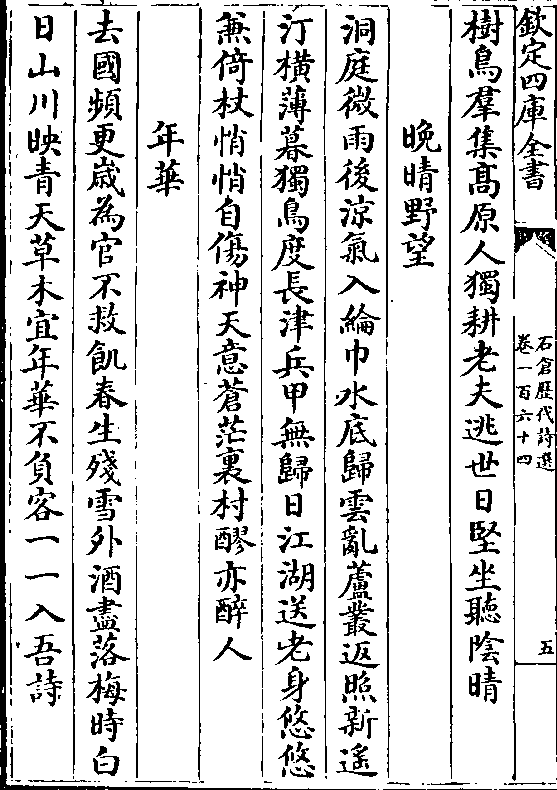 欽定四庫全書
石倉歴代詩選
卷一百六十四
五
樹鳥羣集髙原人獨耕老夫逃世日堅坐聽隂晴
晚晴野望
洞庭微雨後涼氣入綸巾水底歸雲亂蘆叢返照新遙
汀橫薄暮獨鳥度長津兵甲無歸日江湖送老身悠悠
兼倚杖悄悄自傷神天意蒼茫裏村醪亦醉人
年華
去國頻更歲為官不救飢春生殘雪外酒盡落梅時白
日山川映青天草木宜年華不負客一一入吾詩